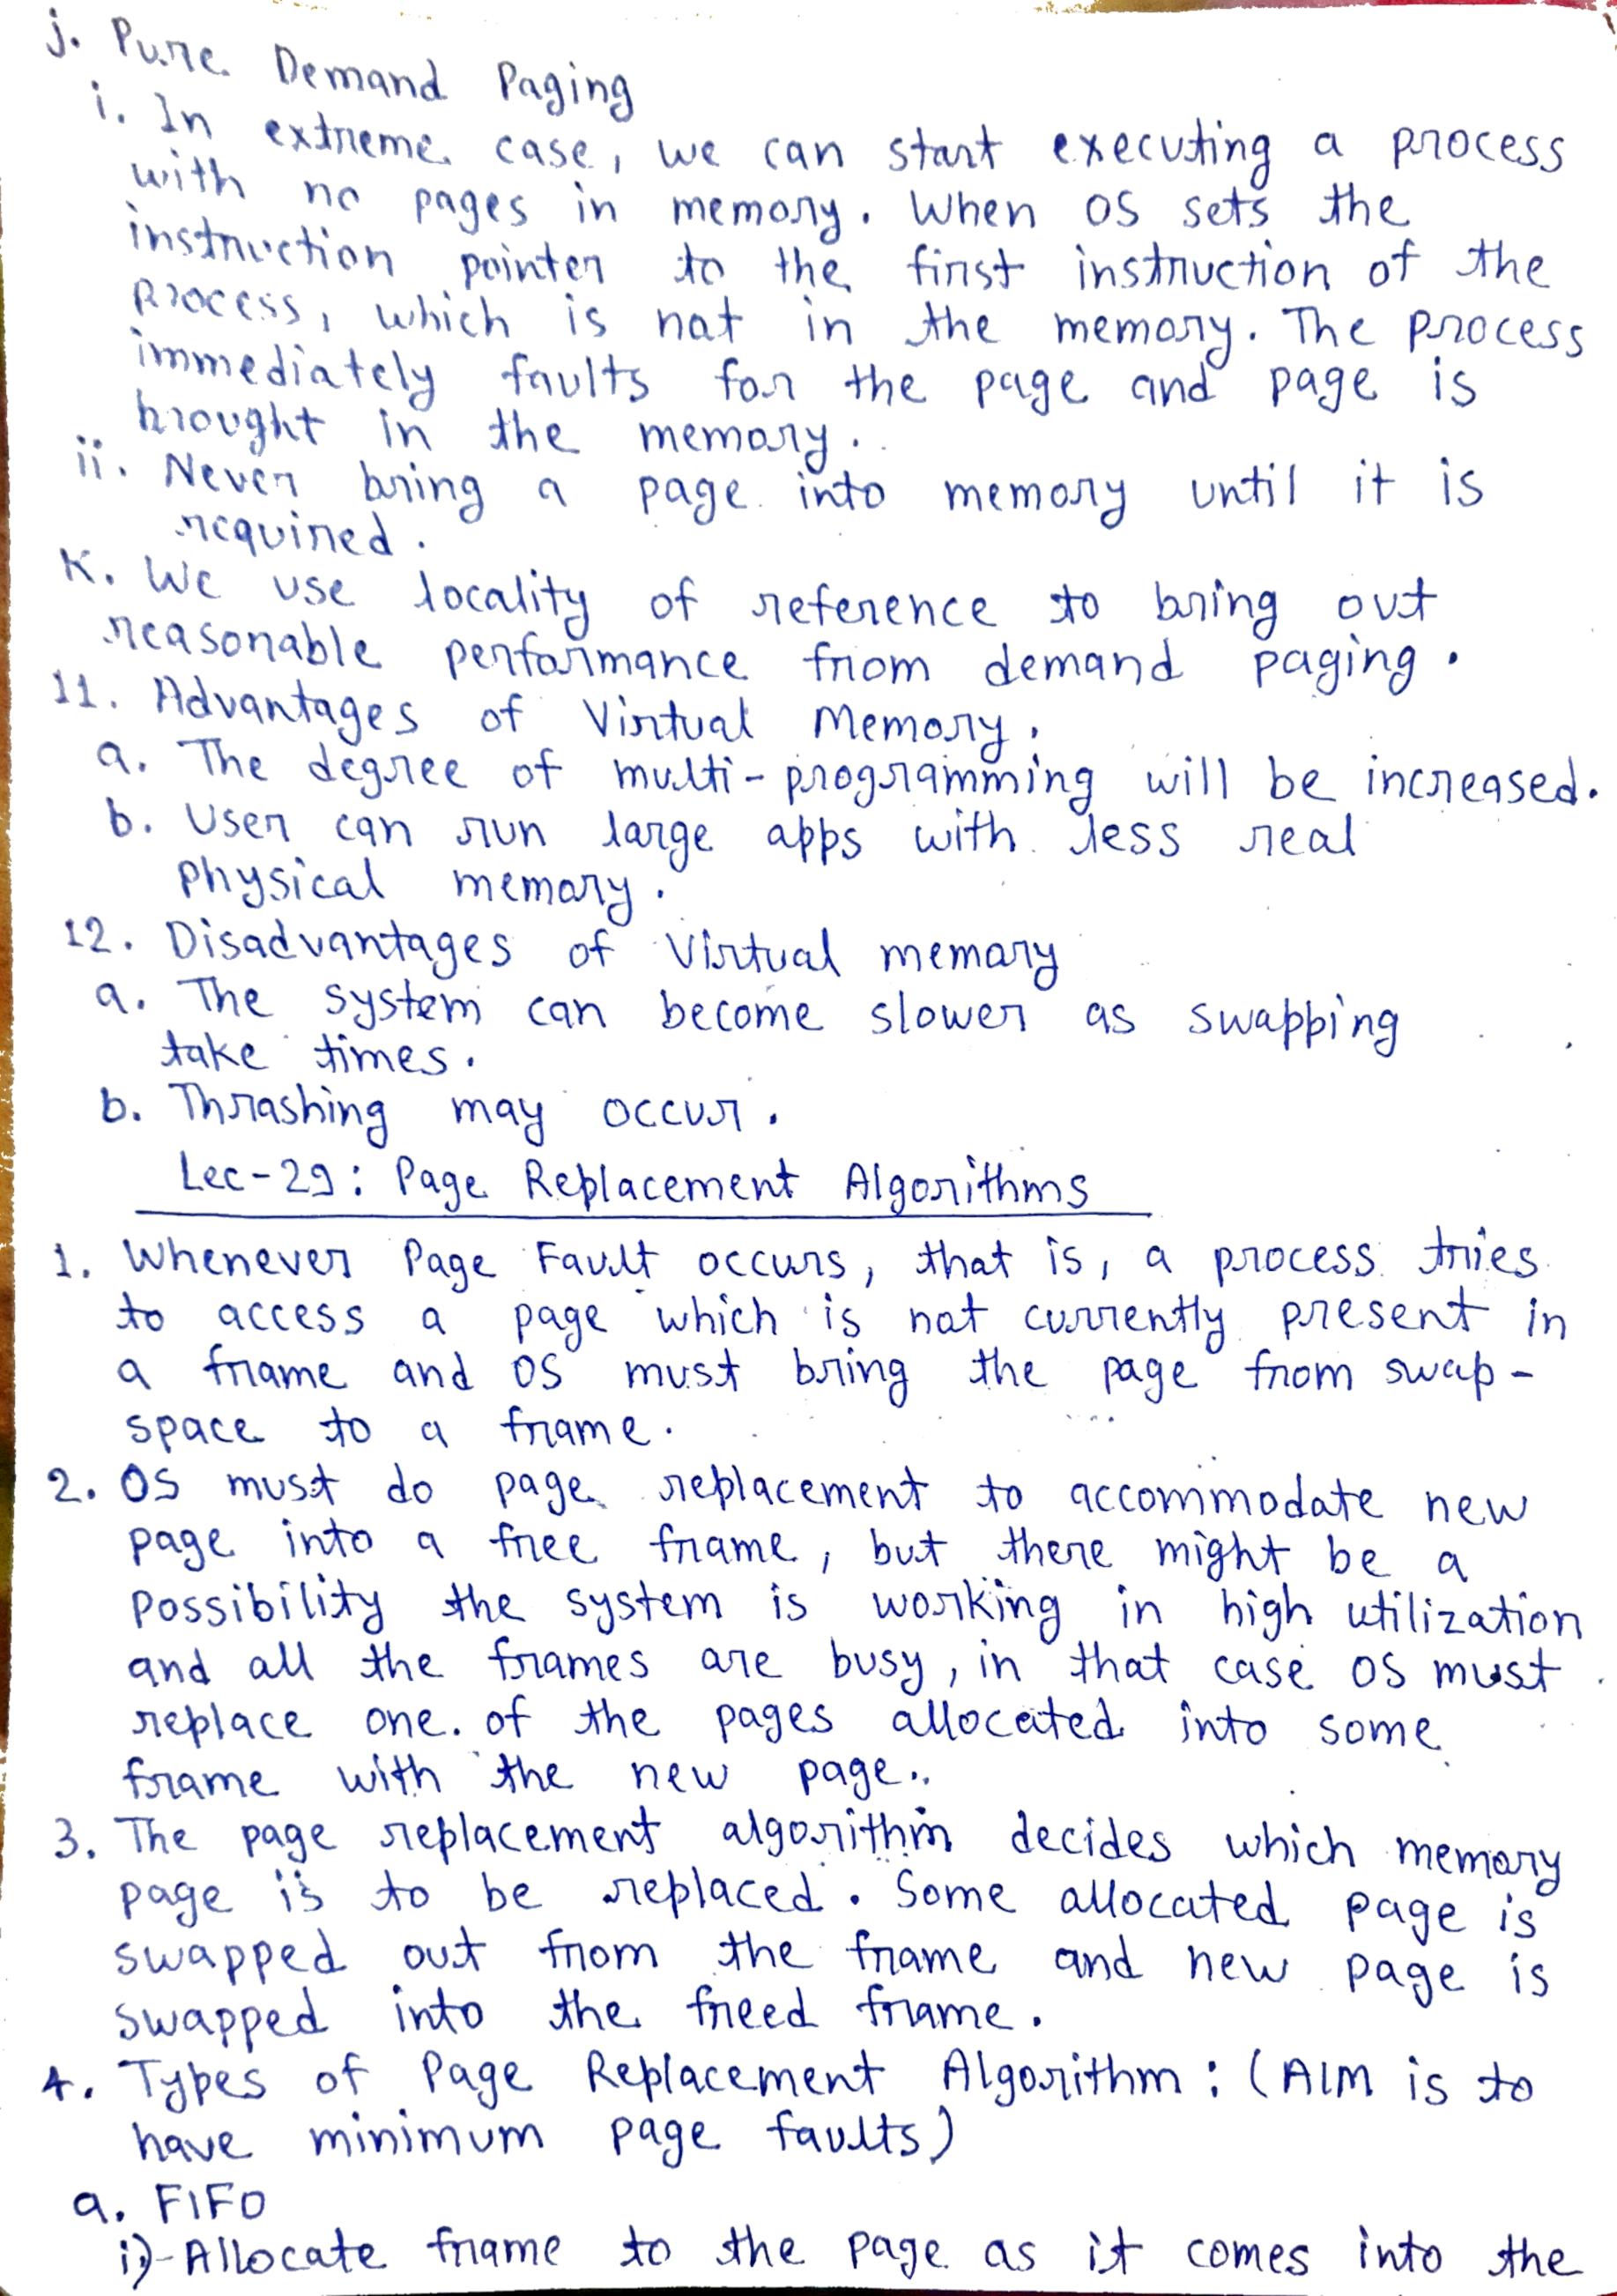 j. Pure Demand Paging
i. In extreme case, we can start executing a process
with no pages in memory. When OS sets the
instruction pointer to the first instruction of the
process, which is not in the memory. The process
immediately faults for the page and page is
brought in the memory.
ii. Never bring a page into memory until it is
required.
K. We use locality of reference to bring out
reasonable performance from demand paging.
11. Advantages of Virtual Memory.
a. The degree of multi-programming will be increased.
b. User can run large apps with less real
physical memory.
12. Disadvantages of Virtual memory
a. The system can become slower as swapping
take times.
b. Thrashing may occur.
Lec-29: Page Replacement Algorithms
1. Whenever Page Fault occurs, that is, a process tries
to access a page which is not currently present in
a frame and OS must bring the page from swap-
space to a frame.
2. OS must do page replacement to accommodate new
page into a free frame, but there might be a
possibility the system is working in high utilization
and all the frames are busy, in that case OS must
replace one of the pages allocated into some
frame with the new page.
3. The page replacement algorithm decides which memory
page is to be replaced. Some allocated page is
swapped out from the frame and new page is
swapped into the freed frame.
4. Types of Page Replacement Algorithm: (AIM is to
have minimum page faults)
a. FIFO
i)-Allocate frame to the page as it comes into the